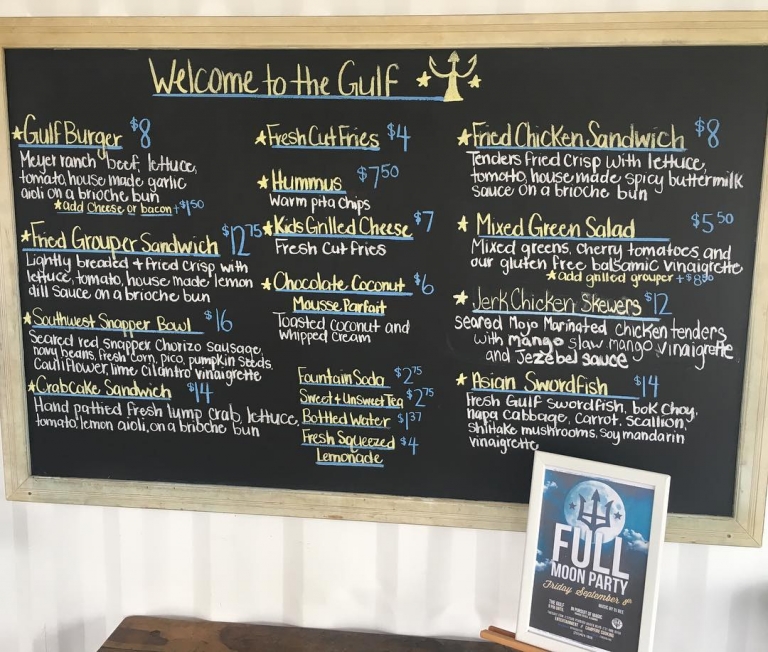 Welcome to the Gulf
Gulf Burger $8
Meyer ranch beef, lettuce,
tomato, house made garlic
aioli on a brioche bun
add Cheese or bacon +$1.50
Fried Grouper Sandwich $12.75
Lightly breaded + fried crisp with
lettuce, tomato, house made lemon
dill sauce on a brioche bun
Southwest Snapper Bowl $16
Seared red snapper, chorizo sausage,
navy beans, fresh corn, pico, pumpkin seeds,
cauliflower, lime cilantro vinaigrette
Crabcake Sandwich $14
Hand pattied fresh lump crab, lettuce,
tomato, lemon aioli, on a brioche bun
Fresh Cut Fries $4
Hummus $7.50
Warm pita chips
Kids Grilled Cheese $7
Fresh Cut fries
Chocolate Coconut $6
Mousse Parfait
Toasted coconut and
whipped cream
Fountain Soda $2.75
Sweet + Unsweet Tea $2.75
Bottled Water $1.37
Fresh Squeezed $4
Lemonade
Fried Chicken Sandwich $8
Tenders fried crisp with lettuce,
tomato, house made spicy buttermilk
sauce on a brioche bun
Mixed Green Salad $5.50
Mixed greens, cherry tomatoes, and
our gluten free balsamic vinaigrette
add grilled grouper +$8.50
Jerk Chicken Skewers $12
seared Mojo Marinated chicken tenders
with mango slaw mango vinaigrette
and Jezebel sauce
Asian Swordfish $14
Fresh Gulf swordfish, bok choy,
napa cabbage, carrot, scallion,
shiitake mushrooms, soy mandarin
vinaigrette
FULL
MOON PARTY
Friday September 8th